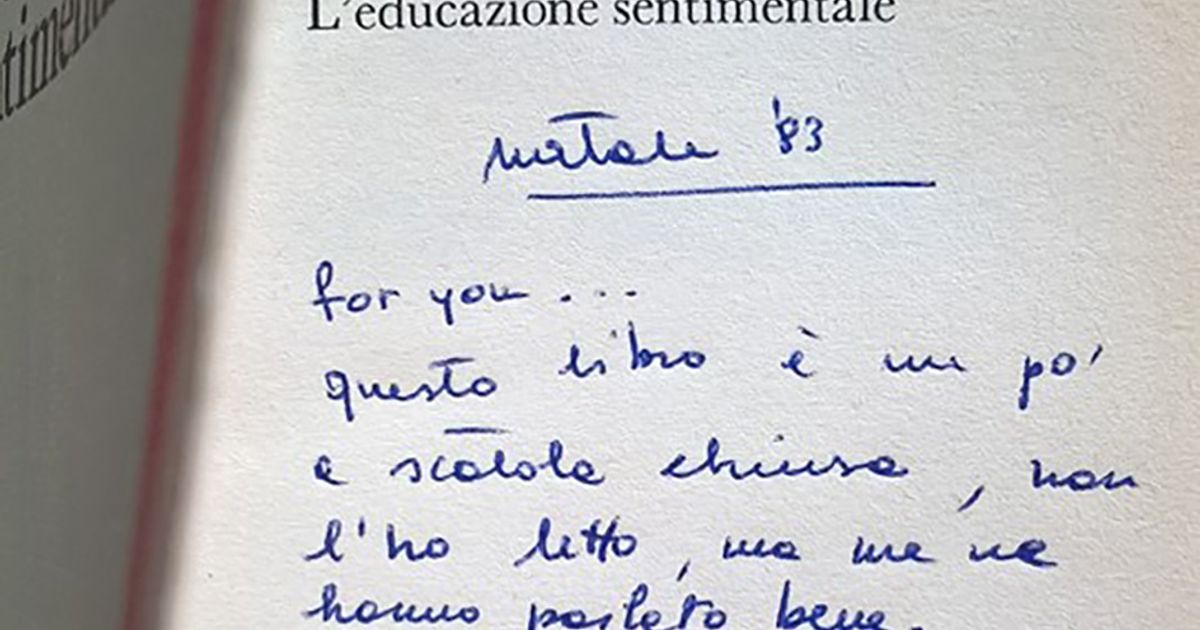 L'educazione sentimentale
timenta
natale '83
for you ...
questo libro è un po'
a scatola chiusa, non
l'ho letto, ma me ne
hanno parlato bene.